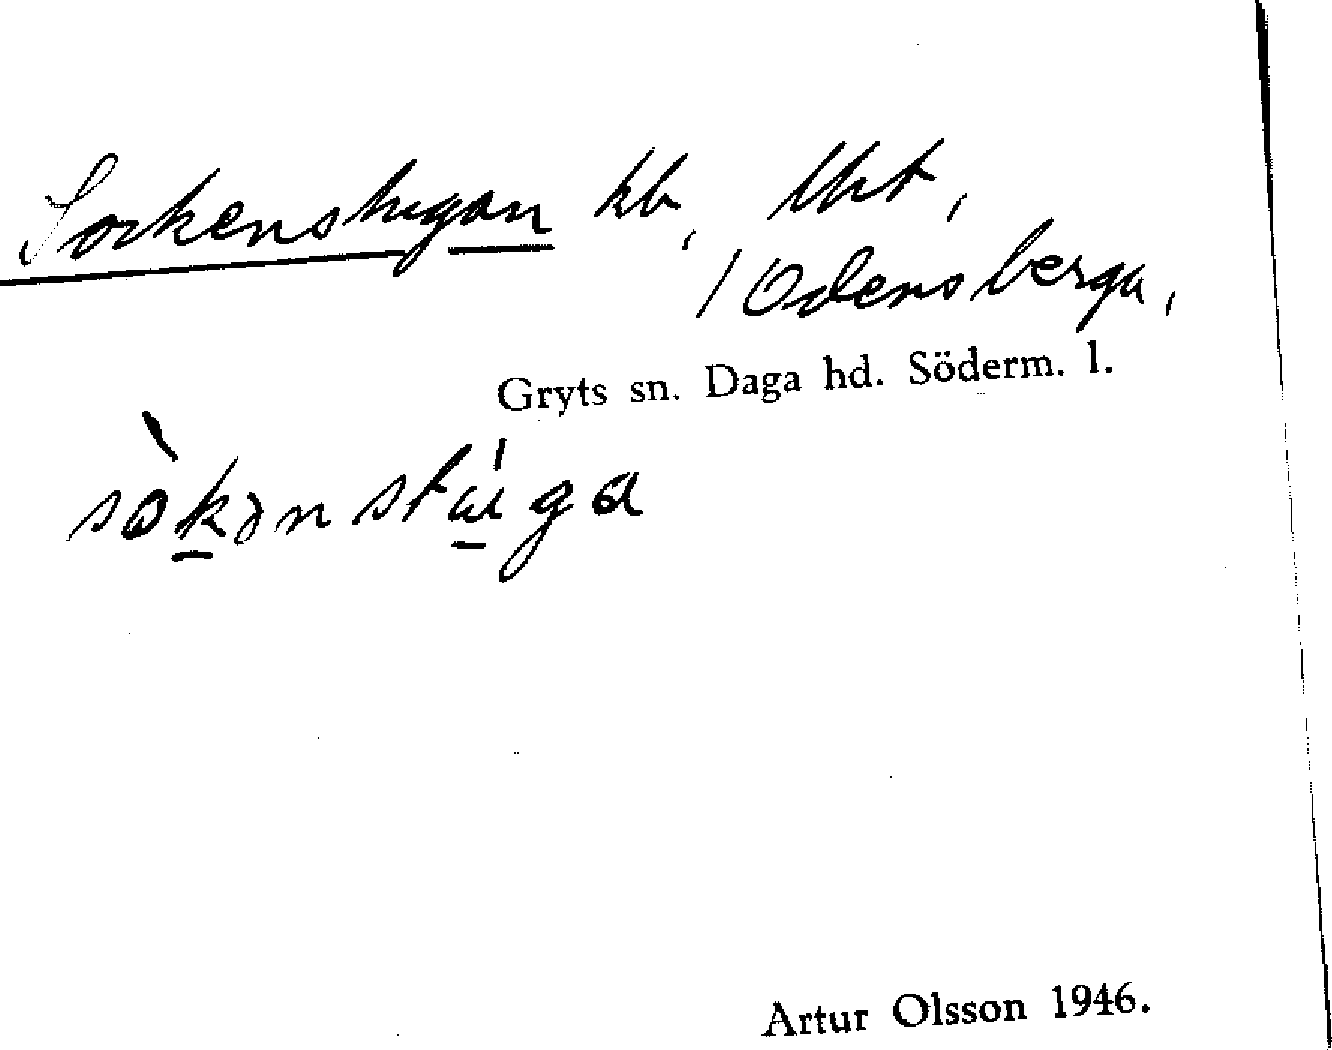 Sockenstugan kb, lht,
/Odensberga,
Gryts sn. Daga hd. Söderm. l.
sòkənstúga
Artur Olsson 1946.